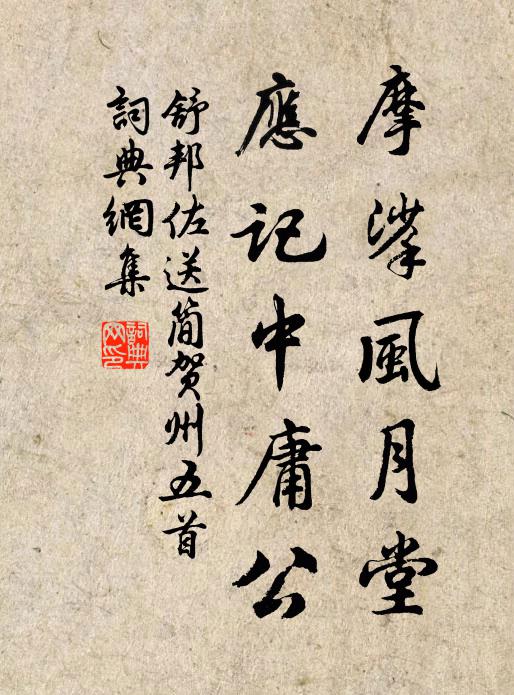 摩挲風月堂
應記中庸公
舒邦佐送簡賀州五首
詞典網集
詞典網印